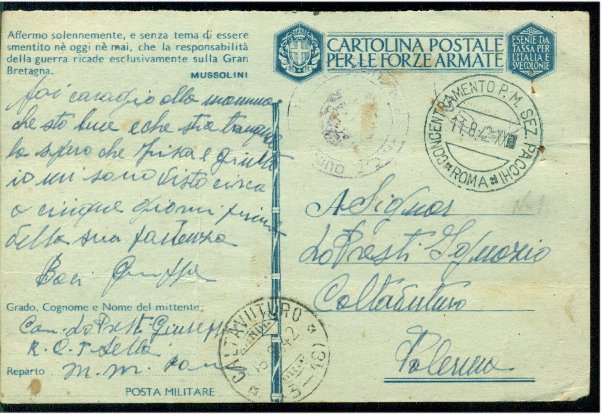 Affermo solennemente, e senza tema di essere
smentito nè oggi nè mai, che la responsabilità
della guerra ricade esclusivamente sulla Gran
Bretagna.
MUSSOLINI
CARTOLINA POSTALE
PER LE FORZE ARMATE
ESENTE DA
TASSA PER
L'ITALIA E
SVE COLONIE
CONCENTRAMENTO P.M. SEZ. PACCHI
17.8.42-XX
ROMA
alla mamma
che sto bene e che stia
la spero che
io mi sono visto circa
a cinque giorni prima
della sua partenza
Baci
A Signor
Lo Presti Ignazio
Caltavuturo
Palermo
Grado, Cognome e Nome del mittente:
Can. Lo Presti Giuseppe
R. C. T. Sella
Reparto
POSTA MILITARE
CALTAVUTURO